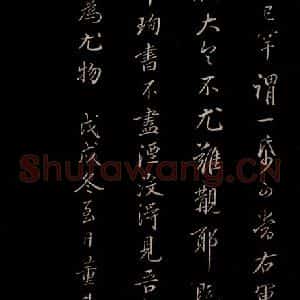 已罕謂一紙可當右軍
大令不尤難覯耶既
珣書不盡湮沒得見吾
為尤物 戊戌冬至日重
Shufawang.CN